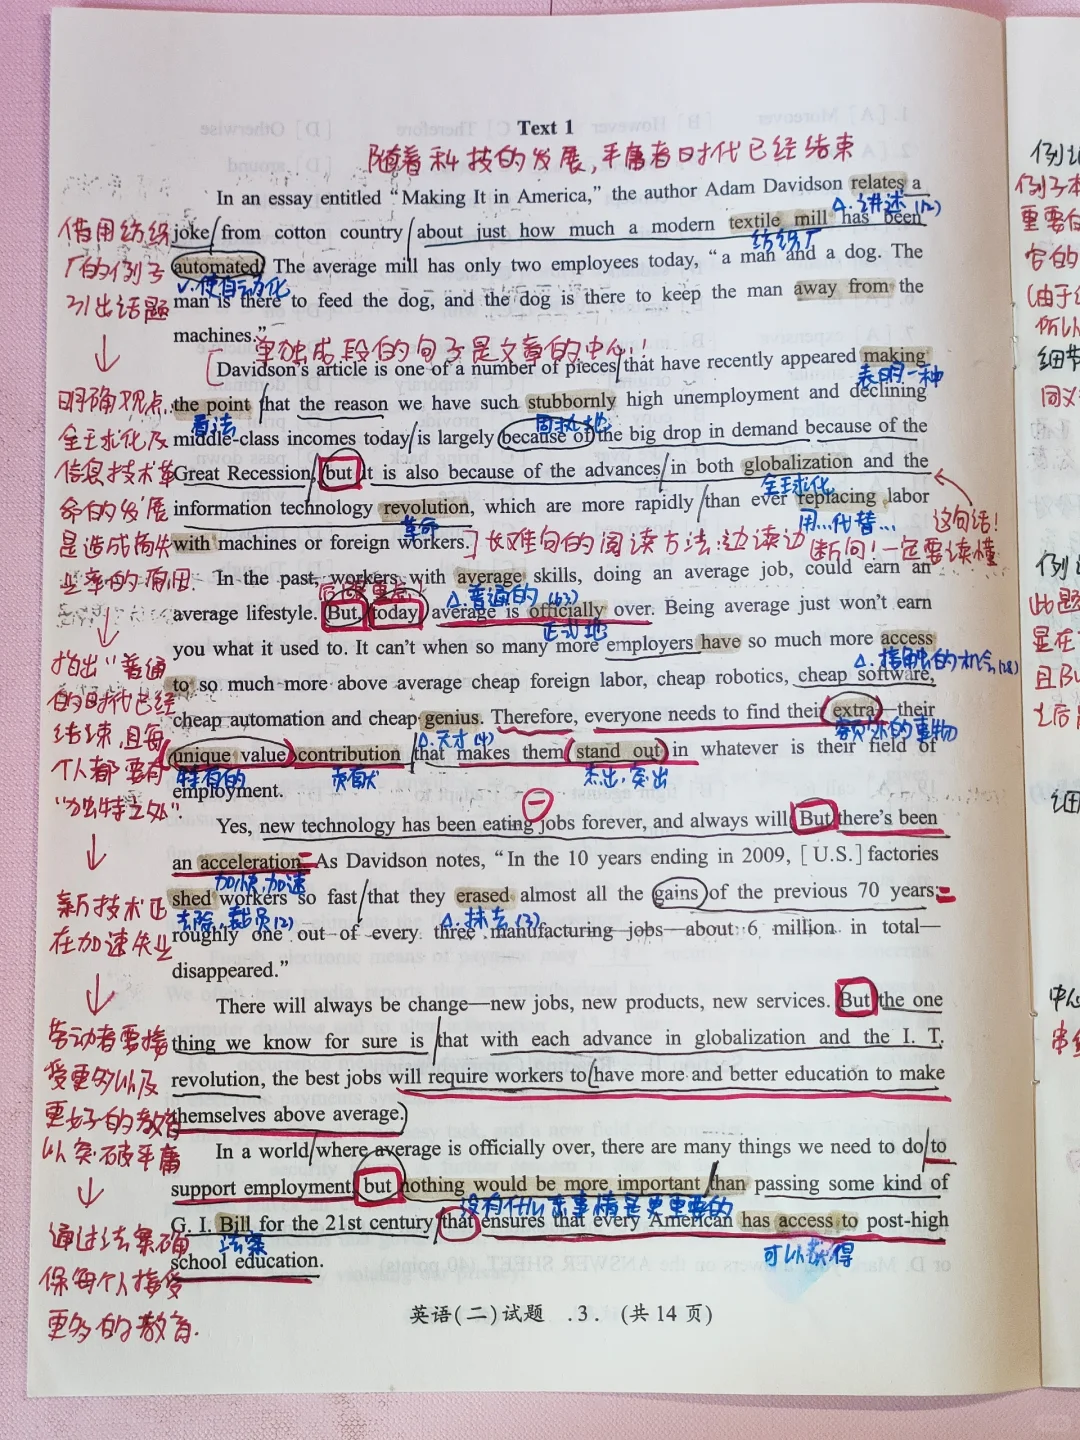 Text 1
随着科技的发展,平庸者时代已经结束
In an essay entitled “Making It in America,” the author Adam Davidson relates a
△.讲述(12)
joke from cotton country about just how much a modern textile mill has been
纺织厂
automated. The average mill has only two employees today, “a man and a dog. The
v.使自动化
man is there to feed the dog, and the dog is there to keep the man away from the
machines.”
单独成段的句子是文章的中心!!
Davidson's article is one of a number of pieces that have recently appeared making
表明一种
the point that the reason we have such stubbornly high unemployment and declining
看法
固执地
middle-class incomes today is largely because of the big drop in demand because of the
Great Recession, but it is also because of the advances in both globalization and the
全球化
information technology revolution, which are more rapidly than ever replacing labor
革命
用...代替...
这句话!
with machines or foreign workers.
长难句的阅读方法:边读边断句!一定要读懂
In the past, workers with average skills, doing an average job, could earn an
△普通的(63)
average lifestyle. But, today, average is officially over. Being average just won't earn
正式地
you what it used to. It can't when so many more employers have so much more access
△.接触的机会(28)
to so much more above average cheap foreign labor, cheap robotics, cheap software,
cheap automation and cheap genius. Therefore, everyone needs to find their extra—their
△.天才(4)
额外的事物
unique value contribution that makes them stand out in whatever is their field of
特有的
贡献
杰出,突出
employment.
Yes, new technology has been eating jobs forever, and always will. But there's been
an acceleration. As Davidson notes, “In the 10 years ending in 2009, [U.S.] factories
加快,加速
shed workers so fast that they erased almost all the gains of the previous 70 years;
去除,裁员(2)
△.抹去(3)
roughly one out of every three manufacturing jobs—about 6 million in total—
disappeared.”
There will always be change—new jobs, new products, new services. But the one
thing we know for sure is that with each advance in globalization and the I. T.
revolution, the best jobs will require workers to have more and better education to make
themselves above average.
In a world where average is officially over, there are many things we need to do to
support employment, but nothing would be more important than passing some kind of
没有什么事情是更重要的
G. I. Bill for the 21st century that ensures that every American has access to post-high
法案
可以获得
school education.
英语(二)试题 .3. (共14页)
借用纺织
厂的例子
引出话题
↓
明确观点,
全球化及
信息技术革
命的发展
是造成高失
业率的原因.
↓
指出“普通
的时代已经
结束,且每
个人都要有
“独特之处”.
↓
新技术正
在加速失业
↓
劳动者要接
受更多以及
更好的教育
以突破平庸
↓
通过法案确
保每个人接受
更多的教育.
例子本
重要的
容的
(由于
所以
细节
同义
此题
显在
且Bu